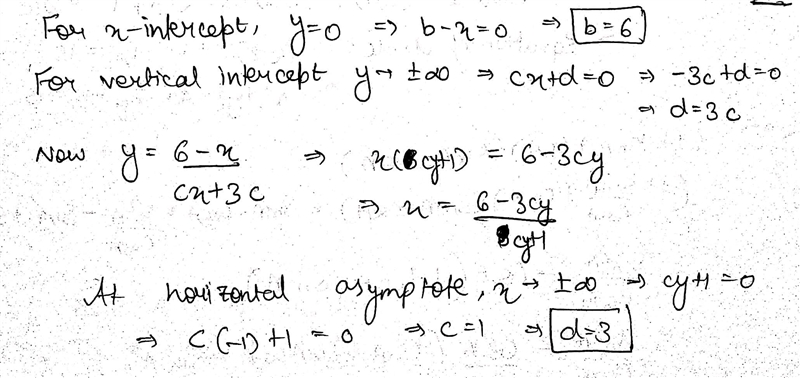 For x-intercept, y=0 ⇒ b-x=0 ⇒ b=6
For vertical intercept y→ ±∞ ⇒ cx+d=0 ⇒ -3c+d=0
⇒ d=3c
Now y = (6-x)/(cx+3c) ⇒ x(cy+1) = 6-3cy
⇒ x = (6-3cy)/(cy+1)
At horizontal asymptote, x→ ±∞ ⇒ cy+1=0
⇒ c(-1)+1 = 0 ⇒ c=1 ⇒ d=3